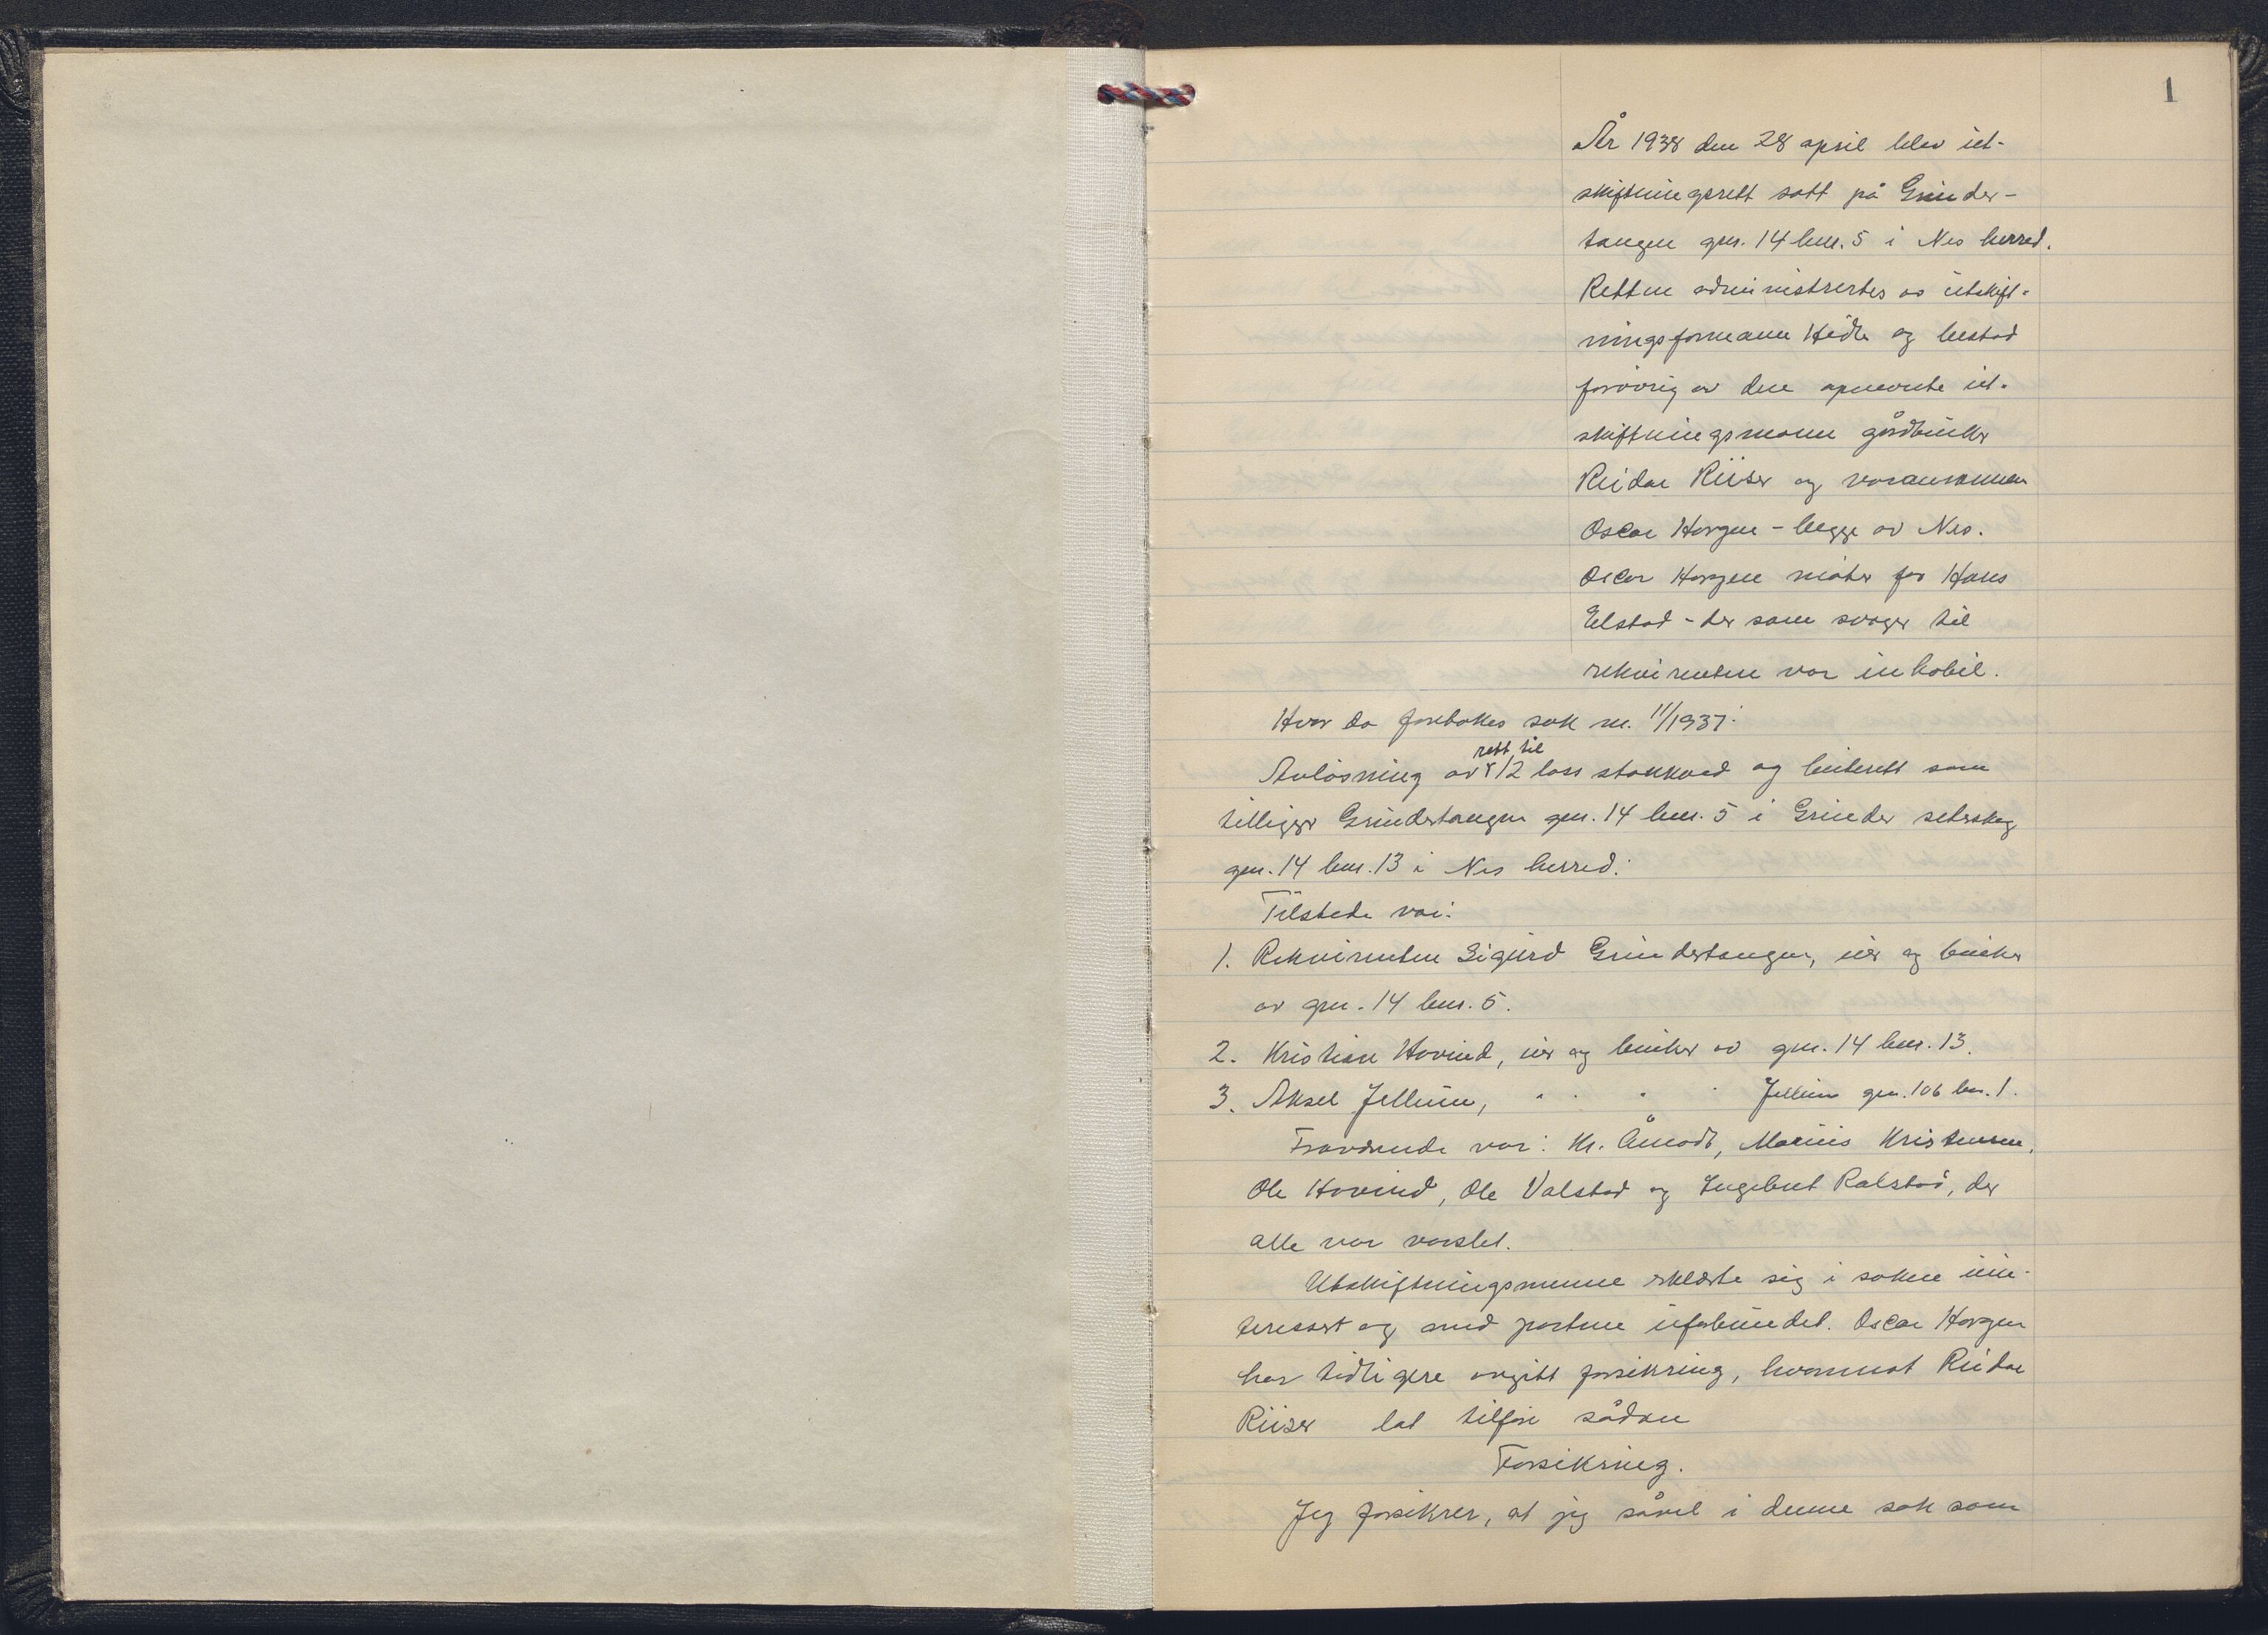 1
År 1938 den 28 april blev ut-
skiftningsrett satt på Grinder-
tangen gnr. 14 bnr. 5 i Nes herred.
Retten administrertes av utskift-
ningsformann Hødte og bestod
forøvrig av den opnevnte ut-
skiftningsmann gårdbruker
Reidar Riiser og varamannen
Oscar Horgen - begge av Nes.
Oscar Horgen møter for Hans
Elstad - der som svoger til
rekvirenten var inhabil.
Hvor da foretokes sak nr. 11/1937:
Avløsning av rett til 1/2 lass stakkved og beiterett som
tilligger Grindertangen gnr. 14 bnr. 5 i Grinder seterskog
gnr. 14 bnr. 13 i Nes herred:
Tilstede var:
1. Rekvirenten Sigurd Grindertangen, eier og bruker
av gnr. 14 bnr. 5.
2. Kristian Hovind, eier og bruker av gnr. 14 bnr. 13.
3. Aksel Jellum, " " " " Jellum gnr. 106 bnr. 1.
Fraværende var: Kr. Åmodt, Marius Kristensen,
Ole Hovind, Ole Valstad og Ingebret Ralstad, der
alle var varslet.
Utskiftningsmennene erklærte sig i saken uin-
teressert og med partene uforbundet. Oscar Horgen
har tidligere avgitt forsikring, hvorimot Reidar
Riiser lot tilføre sådan
Forsikring.
Jeg forsikrer, at jeg såvel i denne sak som